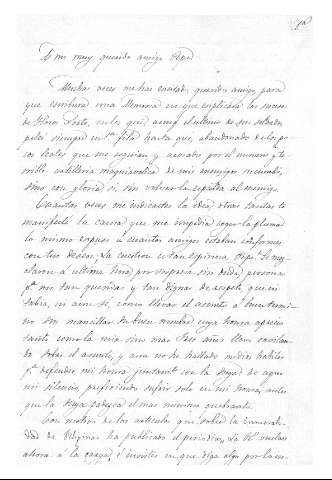 A mi muy querido amigo Pepe
Muchas veces me has excitado, querido amigo, para
que escribiera una Memoria en que explicara los sucesos
de Floros Lovto, en los que, aunque el último de mis soldados
peleé siempre en 1ª fila hasta que, abandonado de los po-
cos leales que me seguían y acosado por el inmenso y te-
rrible artillería maquiavélica de mis enemigos sucumbí,
sino con gloria sí, sin volver la espalda al enemigo.
Cuantas veces me indicaste la idea, otras tantas te
manifesté la causa que me impedía coger la pluma
lo mismo expuse a cuantos amigos estaban conformes
con tus deseos. La cuestión es tan espinosa Pepe! Se mez-
claron a última hora, por sorpresa sin duda, personas
pª mí tan queridas y tan dignas de respeto que no
sabía, ni aún sé, como llevar el asunto a buen térmi-
no sin mancillar su buen nombre cuya honra aprecio
tanto como la mía sino mas. Tres años llevo meditan-
do sobre el asunto, y aun no he hallado medios hábiles
pª defender mi honra juntamte con la suya: de aquí
mi silencio, prefiriendo sufrir solo en mi honra, antes
que la suya padezca el mas mínimo quebranto.
Con motivo de los artículos que sobre la inmorali-
dad de Filipinas ha publicado el periódico, La Rª vuelves
ahora a la carga, é insistes en que diga algo por la im-